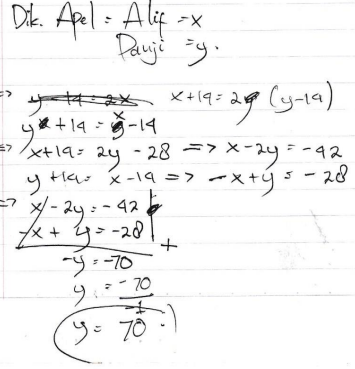 Dik. Apel = Alif = x
Pauji = y.
=> y - 14 = 2x x + 14 = 2 (y - 14)
y + 14 = x - 14
=> x + 14 = 2y - 28 => x - 2y = -42
y + 14 = x - 14 => -x + y = -28
=> x - 2y = -42
-x + y = -28 +
-y = -70
y = -70/-1
y = 70.